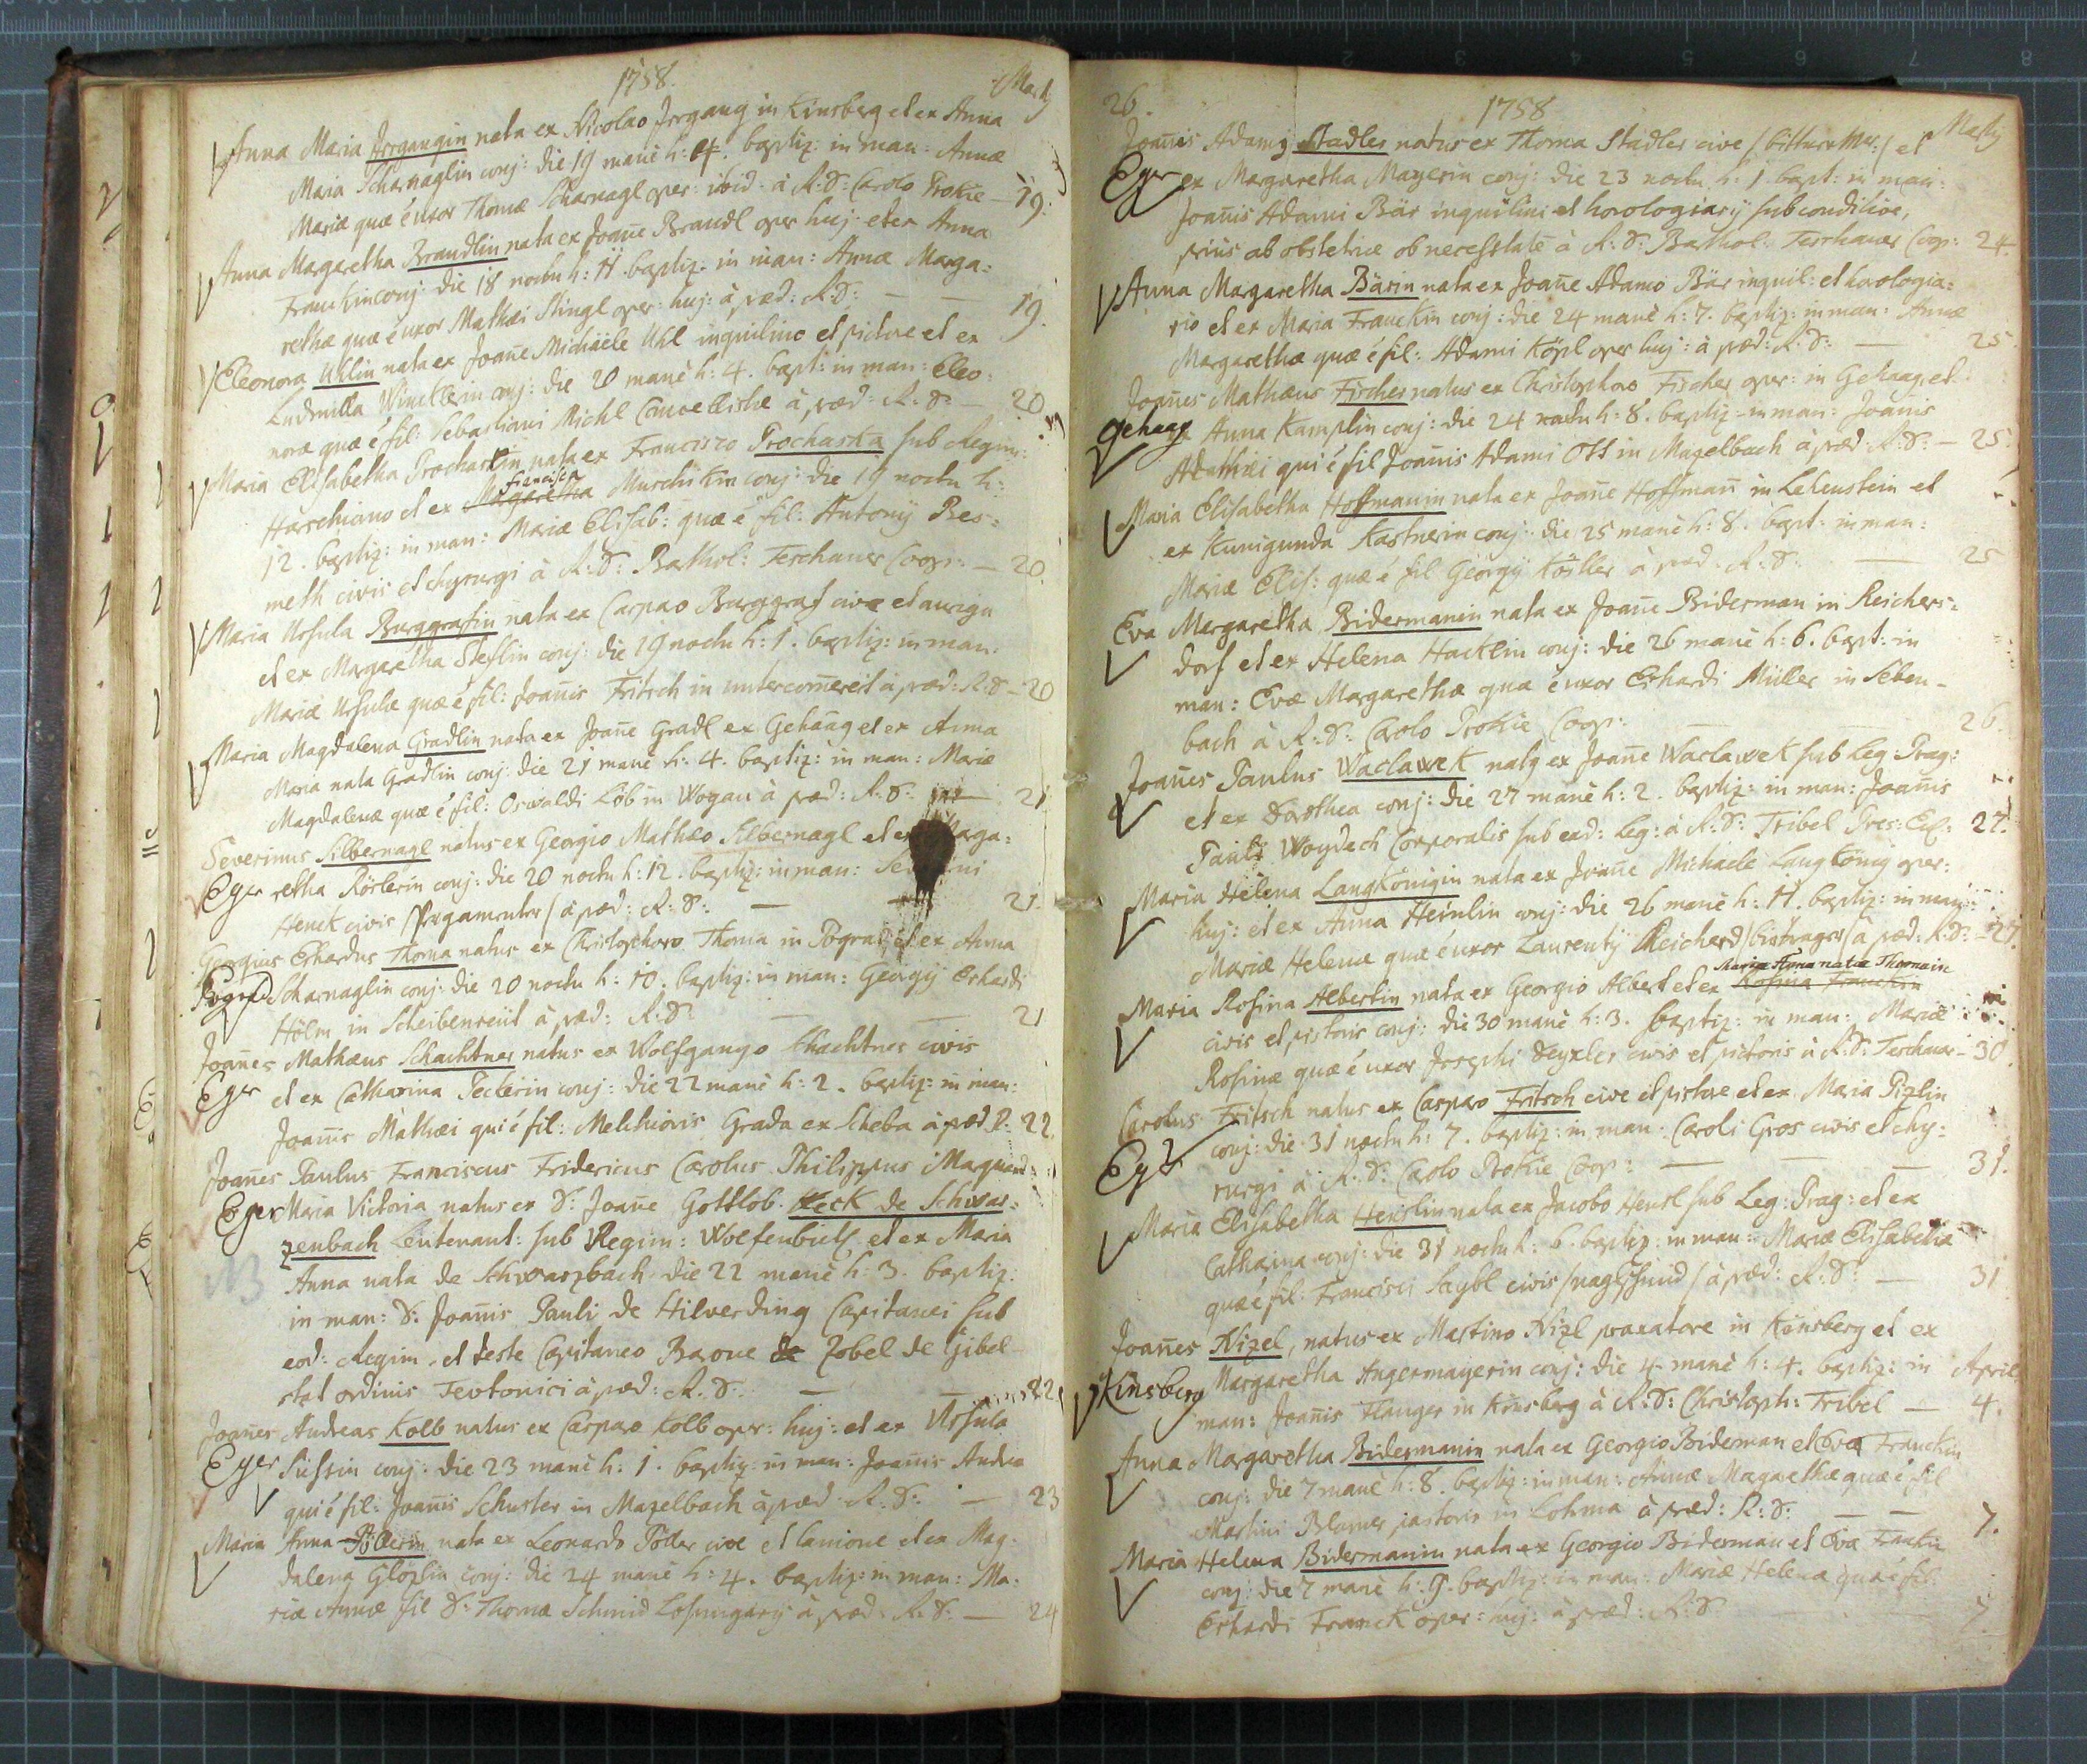 1758.
Martij
Anna Maria Irrgangin nata ex Nicolao Irrgang in Kinsberg et ex Anna
Maria Scharnaglin conj: die 19 manè h: 4. baptiz: in man: Annæ
Mariæ quæ é uxor Thomæ Scharnagl oper: ibid: à R: D: Carolo Prokie — 19.
Anna Margaretha Brandlin nata ex Joañe Brandl oper huj: et ex Anna
Franckin conj: die 18 noctu h: 11. baptiz: in man: Annæ Marga:
rethæ quæ é uxor Mathæi Stingl oper: huj: à præd: R: D: — — 19.
Eleonora Uhlin nata ex Joañe Michäele Uhl inquilino et pictore et ex
Ludmilla Wincklerin conj: die 20 manè h: 4. bapt: in man: Eleo:
noræ quæ é fil: Sebastiani Michl Cancellistæ à præd: R: D: — 20.
Maria Elisabetha Prochaskin nata ex Francisco Prochaska sub Regim:
Harschiano et ex Margaretha Francisca Murchikin conj: die 19 noctu h:
12. baptiz: in man: Mariæ Elisab: quæ é fil: Antonij Bes:
meth civis et chyrurgi à R: D: Barthol: Terschaner Coop: — 20.
Maria Ursula Burggrafin nata ex Casparo Burggraf cive et auriga
et ex Margaretha Steflin conj: die 19 noctu h: 1. baptiz: in man:
Mariæ Ursulæ quæ é fil: Joañis Fritsch in untercom̃ereit à præd: R: D — 20
Maria Magdalena Gradlin nata ex Joañe Gradl ex Gehaag et ex Anna
Maria nata Gradlin conj: die 21 manè h: 4. baptiz: in man: Mariæ
Magdalenæ quæ é fil: Oswaldi Löb in Wogau à præd: R: D: 21
Severinus Silbernagl natus ex Georgio Mathæo Silbernagl et ex Marga:
Eger retha Rörlerin conj: die 20 noctu h: 12. baptiz: in man: Severini
Henck civis /Pergamenter/ à præd: R: D: — — 21.
Georgius Erhardus Thoma natus ex Christophoro Thoma in Pograd et ex Anna
Pograd Scharnaglin conj: die 20 noctu h: 10. baptiz: in man: Georgij Erhardi
Hölm in Scheibenreut à præd: R: D: — — 21
Joañes Mathæus Schachtner natus ex Wolfgango Schachtner civis
Eger et ex Catharina Peclerin conj: die 22 manè h: 2. baptiz: in man:
Joañis Mathæi qui é fil: Melchioris Grada ex Scheba à præd R: 22.
Joañes Paulus Franciscus Fridericus Carolus Philippus Marquard
Eger Maria Victoria natus ex D: Joañe Gottlob Keck de Schwar:
zenbach Leutenant: sub Regim: Wolfenbiets et ex Maria
NB Anna nata de Schwarzbach die 22 manè h: 3. baptiz:
in man: D: Joañis Pauli de Hilverding Capitanei sub
eod: Regim. et teste Capitaneo Barone de Zobel de Gibel-
stat ordinis Teutonici à præd: R: D: — — 22
Joañes Andreas Kolb natus ex Casparo Kolb oper: huj: et ex Ursula
Eger Süssin conj: die 23 manè h: 1. baptiz: in man: Joañis Andreæ
qui é fil: Joañis Schuster in Mazelbach à præd: R: D: — 23
Maria Anna Pöllerin nata ex Leonardo Poller cive et lanione et ex Mag:
dalena Glözlin conj: die 24 manè h: 4. baptiz: in man: Ma:
riæ Annæ fil D: Thomæ Schmid Losungarij à præd: R: D: — 24
26.
1758
Martij
Joañis Adamq Stadler natus ex Thoma Stadler cive / et
Eger ex Margaretha Mayerin conj: die 23 noctu h: 1. bapt: in man:
Joañis Adami Bär inquilini et horologiarij sub conditione,
prius ab obstetrice ob necessitatē à R: D: Barthol: Terschaner Coop: 24.
Anna Margaretha Bärin nata ex Joañe Adamo Bär inquil: et horologia:
rio et ex Maria Franckin conj: die 24 manè h: 7. baptiz: in man: Annæ
Margarethæ quæ é fil: Adami Köpl oper huj: à præd: R: D: — 25.
Joañes Mathæus Fischer natus ex Christophoro Fischer oper: in Gehaag et
Gehaag ex Anna Kamplin conj: die 24 noctu h: 8. baptiz: in man: Joañis
Mathæi qui é fil Joañis Adami Ott in Mazelbach à præd: R: D: — 25.
Maria Elisabetha Hoffmanin nata ex Joañe Hoffmañ in Lehenstein et
ex Kunigunda Kastnerin conj: die 25 manè h: 8. bapt: in man:
Mariæ Elis: quæ é fil Georgij Köstler à præd: R: D: — 25
Eva Margaretha Bidermanin nata ex Joañe Biderman in Reichers:
dorf et ex Helena Hacklin conj: die 26 manè h: 6. bapt: in
man: Evæ Margarethæ quæ é uxor Erhardi Müller in Seben-
bach à R: D: Carolo Prokie Coop: — — 26.
Joañes Paulus Waclawek natq ex Joañe Waclawek sub Leg: Prag:
et ex Dorothea conj: die 27 manè h: 2. baptiz: in man: Joañis
Pauli Woydech Corporalis sub ead: Leg: à R: D: Tribel Pres: Ecl: 27.
Maria Helena Langkönigin nata ex Joañe Michaele Langkönig oper:
huj: et ex Anna Heinlin conj: die 26 manè h: 11. baptiz: in man:
Mariæ Helenæ quæ é uxor Laurentij Reichard /bistrager/ à præd: R: D: — 27.
Maria Rosina Albertin nata ex Georgio Albert et ex Rosina Franckin Maria Anna nata Thomain
civis et pistoris conj: die 30 manè h: 3. baptiz: in man: Mariæ
Rosinæ quæ é uxor Josephi Deyzler civis et pictoris à R: D: Terchaner — 30.
Carolus Fritsch natus ex Casparo Fritsch cive et pistore et ex Maria Pizlin
Eger conj: die 31 noctu h: 7. baptiz: in man: Caroli Gros civis et chy:
rurgi à R: D: Carolo Prokie Coop: — — — 31.
Maria Elisabetha Henslin nata ex Jacobo Hensl sub Leg: Prag: et ex
Catharina conj: die 31 noctu h: 6. baptiz: in man: Mariæ Elisabethæ
quæ é fil: Francisci Saybl civis /naglschmid/ à præd: R: D: — 31
Joañes Nizel, natus ex Martino Nizl praxatore in Kinsberg et ex
Kinsberg Margaretha Angermayerin conj: die 4 manè h: 4. baptiz: in April
man: Joañis Flanger in Kinsberg à R: D: Christoph: Tribel — 4.
Anna Margaretha Bidermanin nata ex Georgio Biderman et Eva Franckin
conj: die 7 manè h: 8. baptiz: in man: Annæ Margarethæ quæ é fil
Martini Blamer pastoris in Lohma à præd: R: D: — — 7.
Maria Helena Bidermanin nata ex Georgio Biderman et Eva Franckin
conj: die 7 manè h: 9. baptiz: in man: Mariæ Helenæ quæ é fil:
Erhardi Franck oper: huj: à præd: R: D 7.